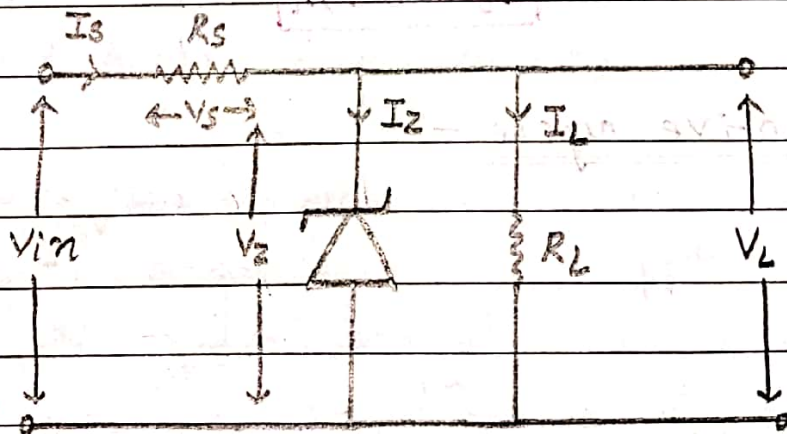 Is Rs
Vs
Iz IL
Vin Vz RL VL